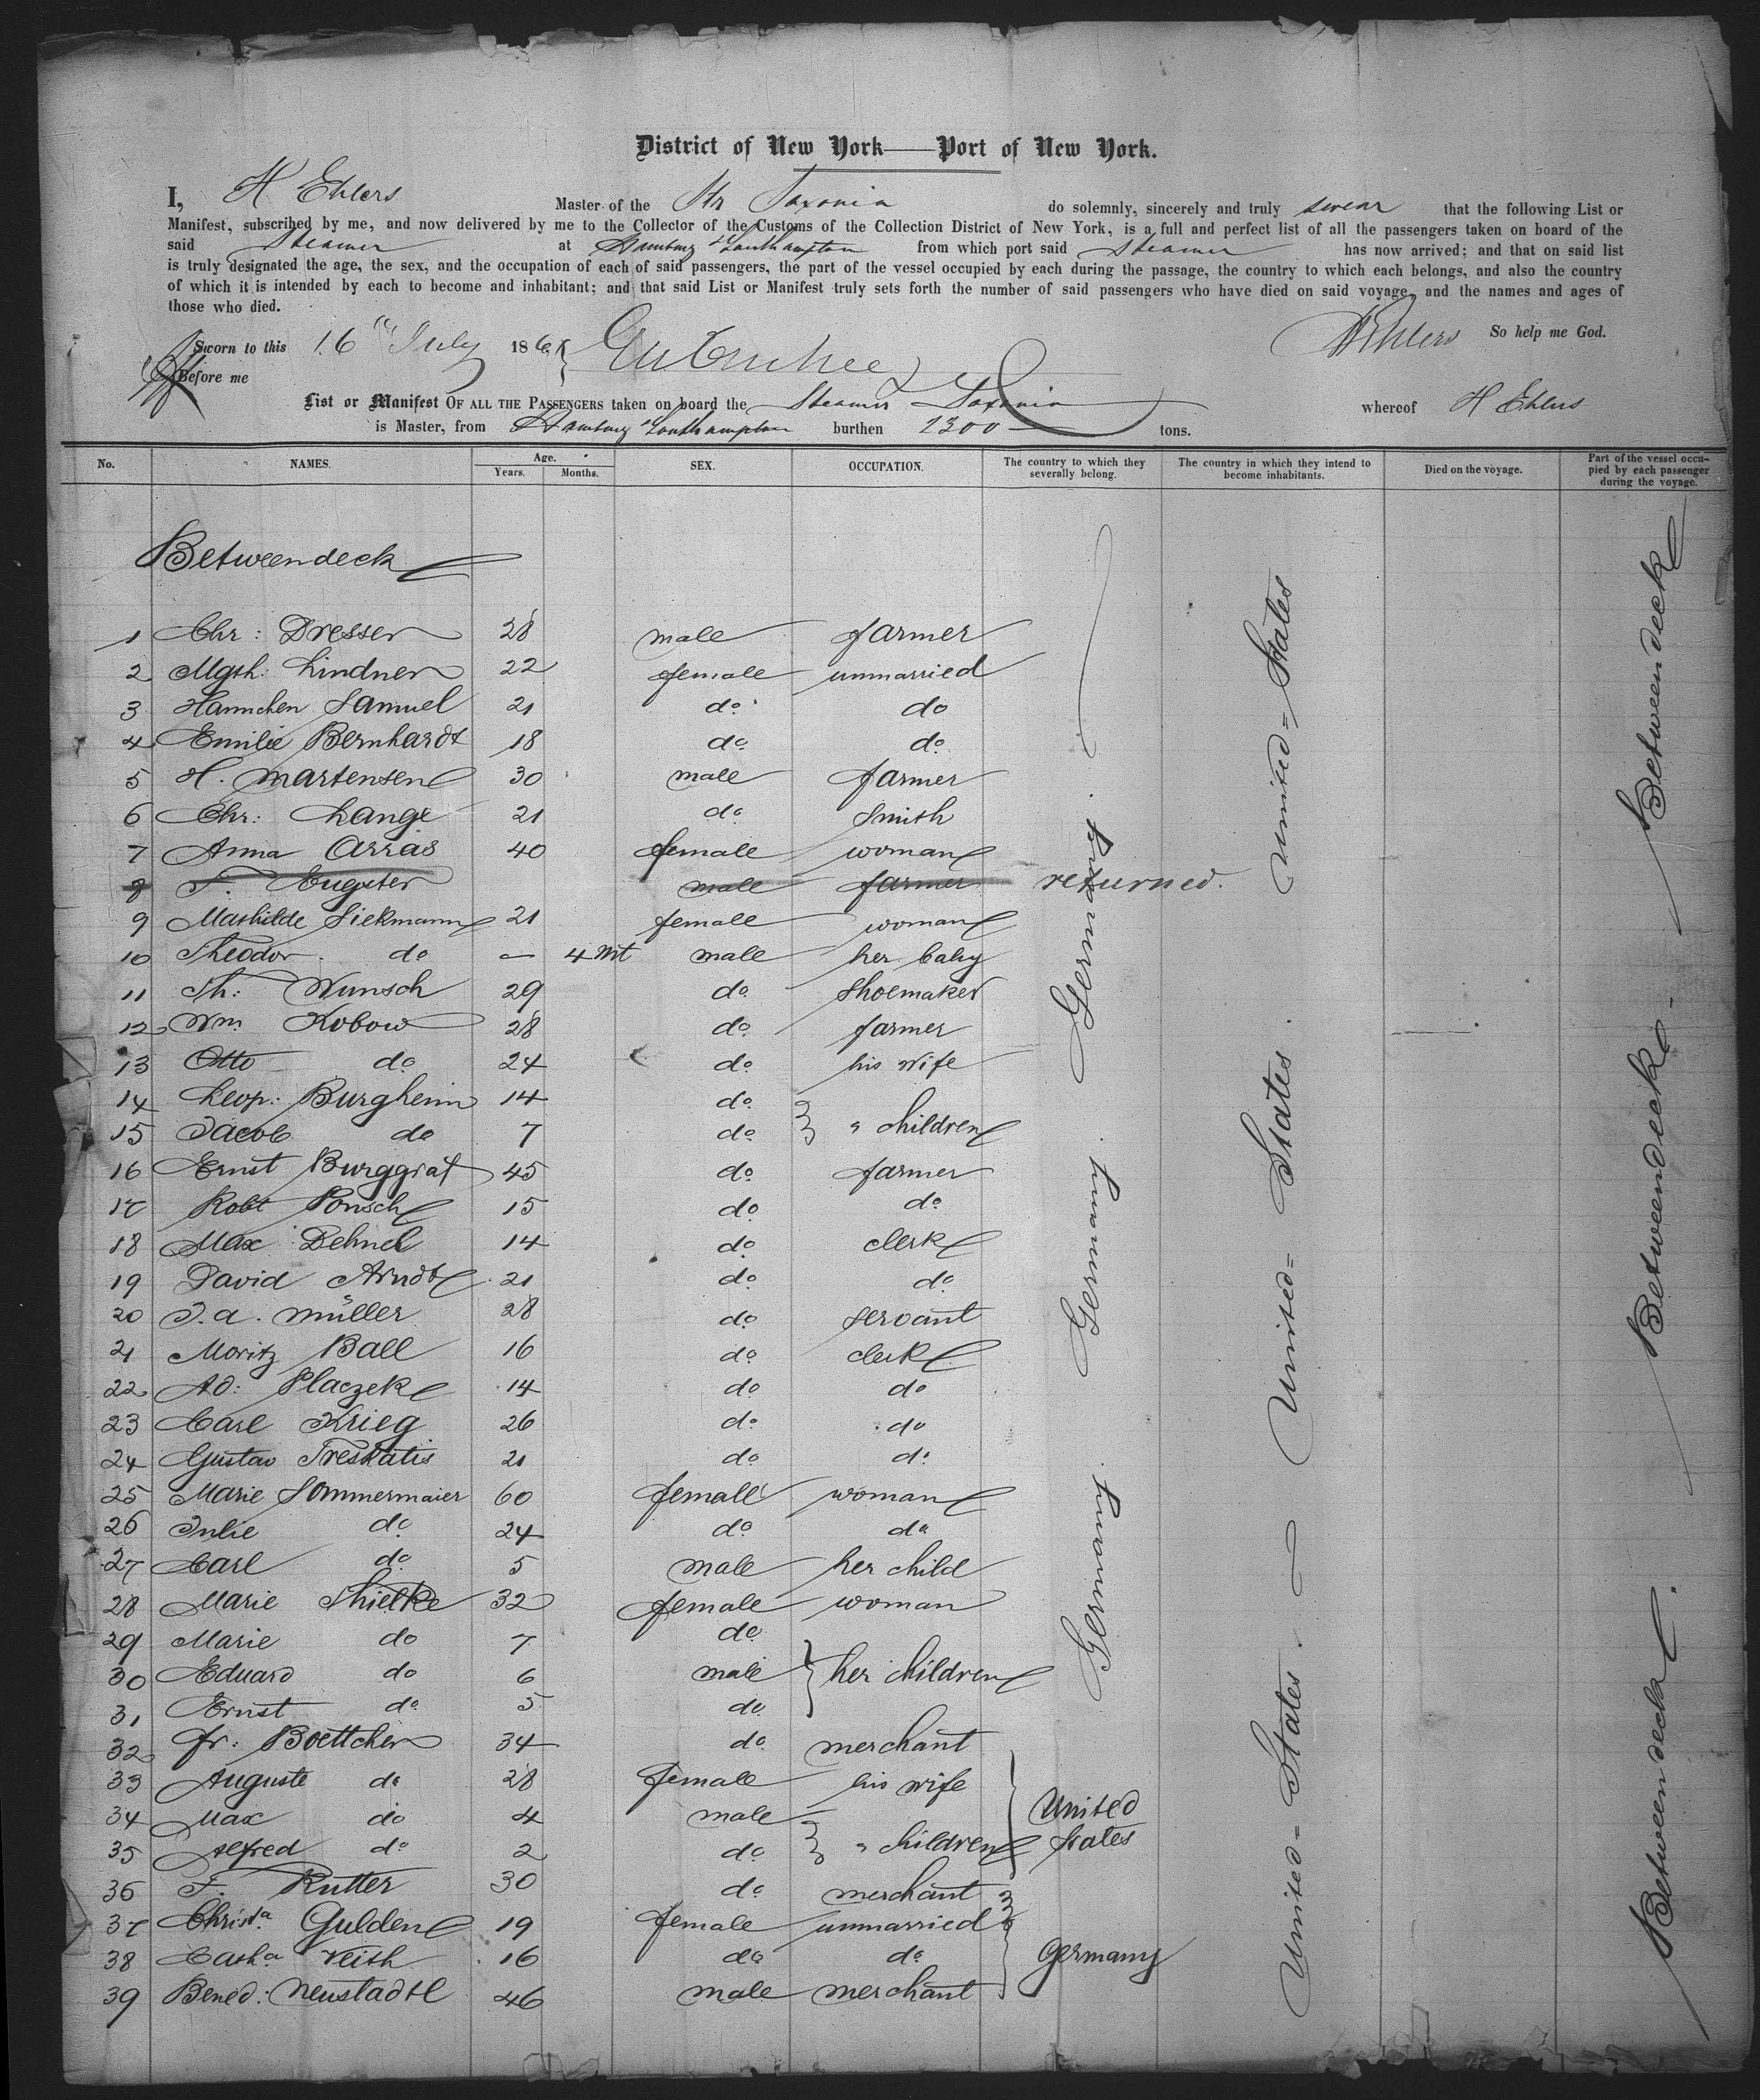 District of New York——Port of New York.
I, H Ehlers Master of the Str Saxonia do solemnly, sincerely and truly swear that the following List or
Manifest, subscribed by me, and now delivered by me to the Collector of the Customs of the Collection District of New York, is a full and perfect list of all the passengers taken on board of the
said Steamer at Hamburg & Southampton from which port said Steamer has now arrived; and that on said list
is truly designated the age, the sex, and the occupation of each of said passengers, the part of the vessel occupied by each during the passage, the country to which each belongs, and also the country
of which it is intended by each to become and inhabitant; and that said List or Manifest truly sets forth the number of said passengers who have died on said voyage, and the names and ages of
those who died.
Sworn to this 16th July 186 HEhlers So help me God.
Before me
List or Manifest OF ALL THE PASSENGERS taken on board the Steamer Saxonia whereof H Ehlers
is Master, from Hamburg & Southampton burthen 2300 tons.
No. NAMES. Age. Years. Months. SEX. OCCUPATION. The country to which they severally belong. The country in which they intend to become inhabitants. Died on the voyage. Part of the vessel occupied by each passenger during the voyage.
Betweendeck
1 Chr: Dresser 28 male farmer
2 Mgth: Lindner 22 female unmarried
3 Hannchen Samuel 21 do do
4 Emilie Bernhardt 18 do do
5 H. Martensen 30 male farmer
6 Chr: Lange 21 do Smith
7 Anna Arras 40 female woman
8 F. Eugster male farmer returned.
9 Mathilde Siekmann 21 female woman
10 Theodor do — 4 Mt male her baby
11 Th: Wunsch 29 do Shoemaker
12 Wm Kobow 28 do farmer
13 Otto do 24 do his wife
14 Leop: Burgheim 14 do
15 Jacob do 7 do " Children
16 Ernst Burggraf 45 do farmer
17 Robt Ponsch 15 do do
18 Max Dehnel 14 do clerk
19 David Arndt 21 do do
20 J. A. Müller 28 do servant
21 Moritz Ball 16 do clerk
22 Ad: Placzek 14 do do
23 Carl Krieg 26 do do
24 Gustav Treskatis 21 do do
25 Marie Sommermaier 60 female woman
26 Julie do 24 do do
27 Carl do 5 male her child
28 Marie Thielke 32 female woman
29 Marie do 7 do
30 Eduard do 6 male her children
31 Ernst do 5 do
32 Fr: Boettcher 34 do merchant
33 Auguste do 28 female his wife
34 Max do 4 male United
35 Alfred do 2 do " Children States
36 F. Rutter 30 do merchant
37 Christa Gulden 19 female unmarried
38 Catha Veith 16 do do Germany
39 Bened: Neustadtl 46 male merchant
Germany
Germany
Germany
United States
United States
United States
Betweendeck
Betweendeck
Betweendeck